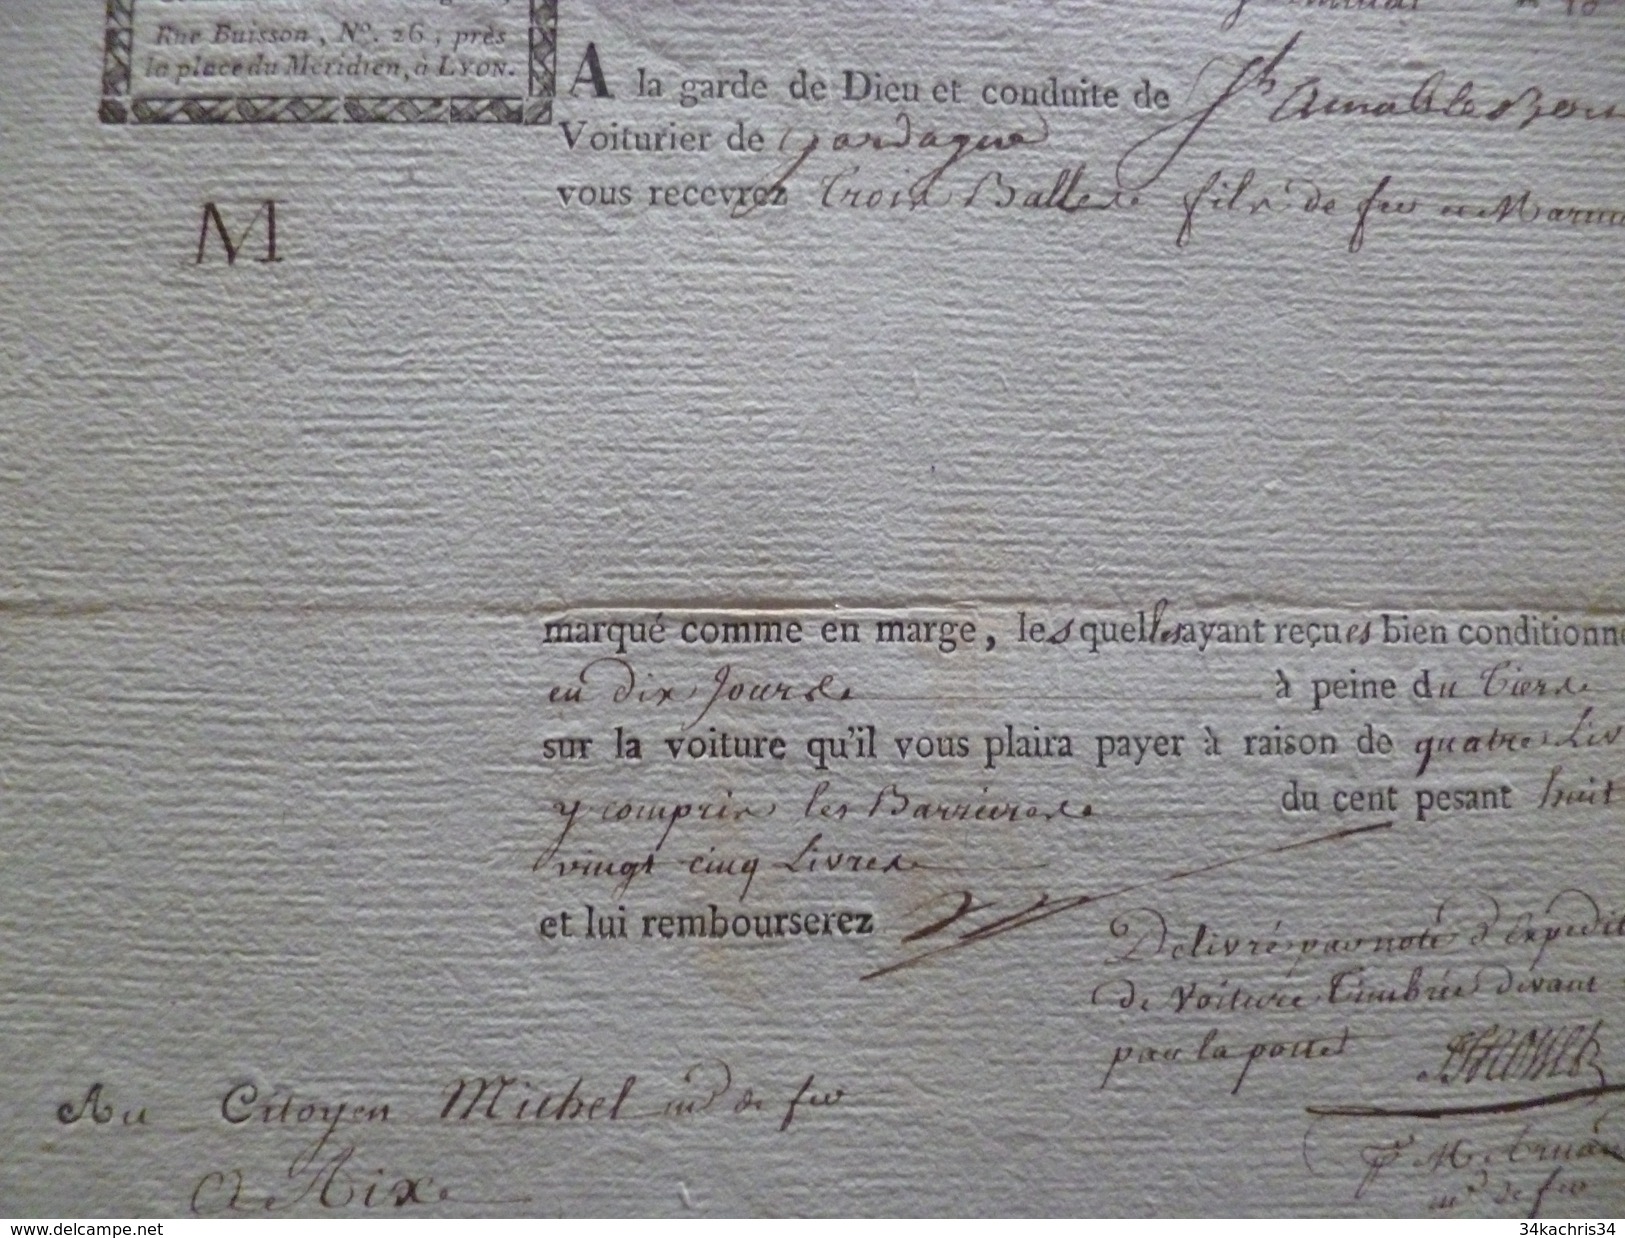 Rue Buisson, N°. 26, près
la place du Méridien, à LYON.
A la garde de Dieu et conduite de Jh amable
Voiturier de gardague
vous recevrez trois Balles fils de fer
M
marqué comme en marge, lesquellesayant reçues bien conditionné
en dix jours à peine du tiers
sur la voiture qu'il vous plaira payer à raison de quatre Liv
y compris les Barrieres du cent pesant huit
vingt cinq Livres
et lui rembourserez
Delivré par note d'expedit
de voiture timbrée devant
par la poste
Au Citoyen Michel md de fer
A Aix
md de fer
www.delcampe.net
34kachris34